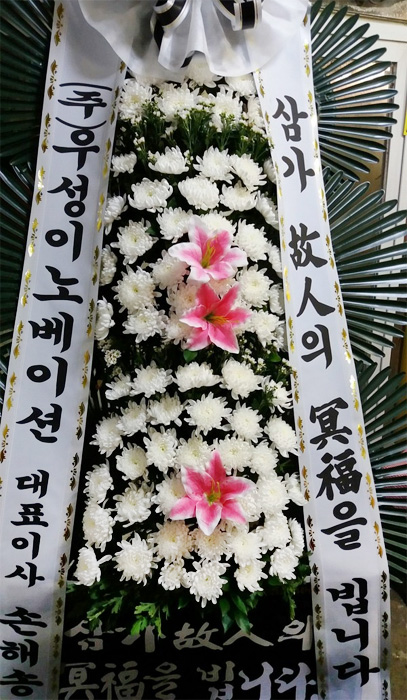 (주)우성이노베이션 대표이사 손해승
삼가 故人의 冥福을 빕니다
삼가 故人의
冥福을 빕니다